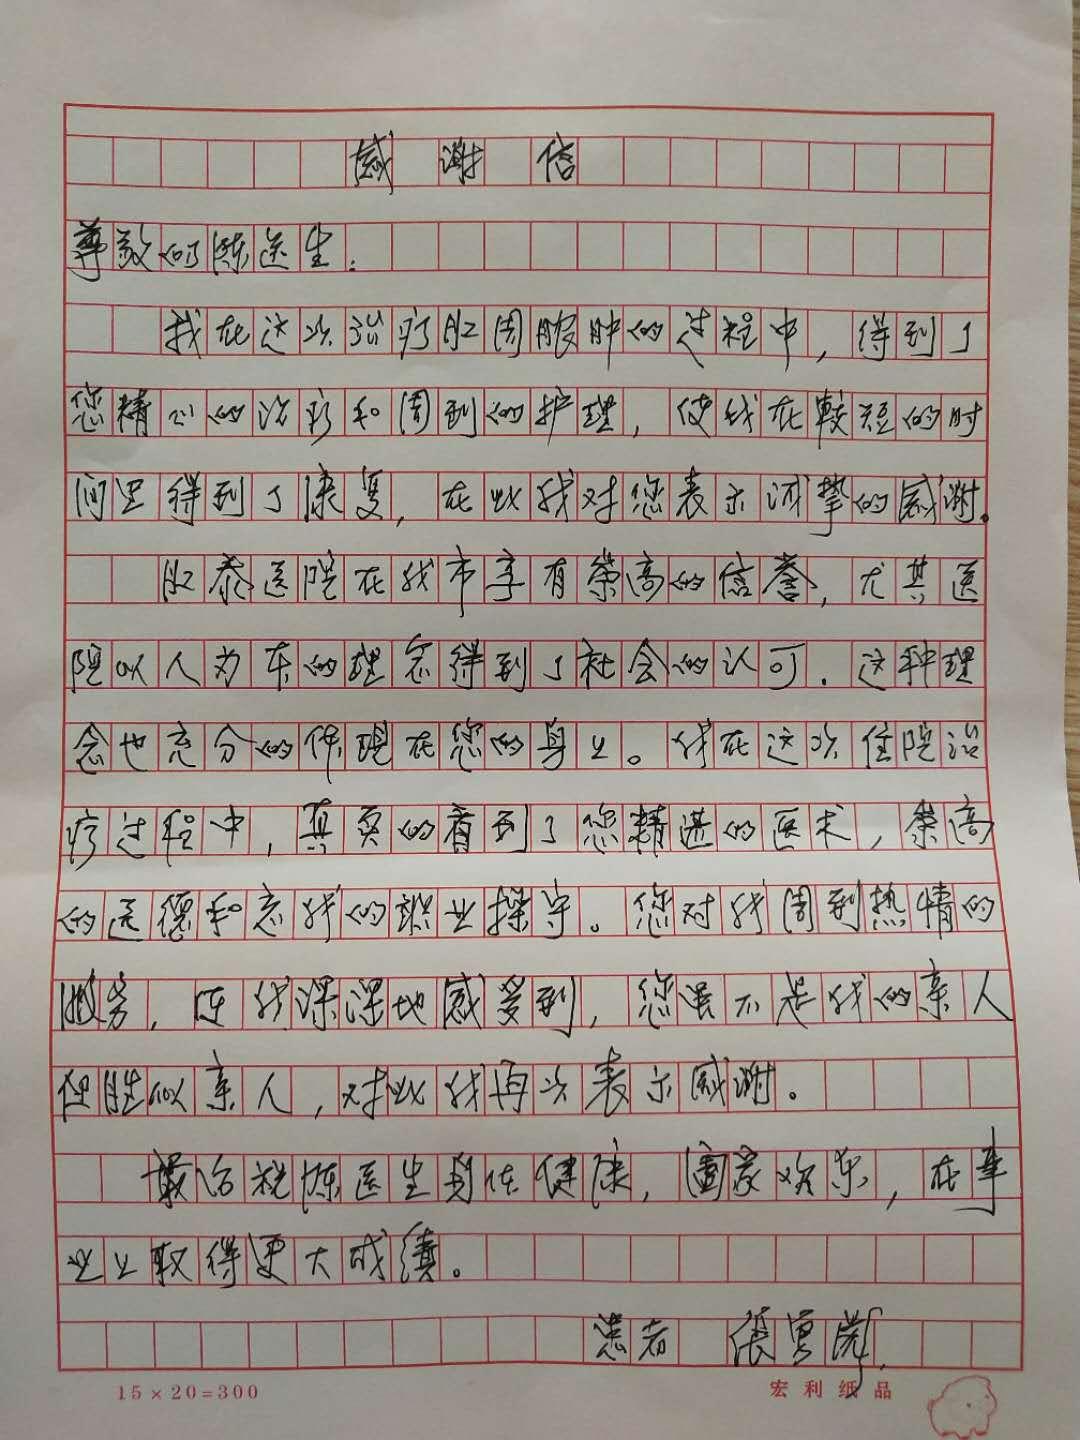 感谢信
尊敬的陈医生：
我在这次治疗肛周脓肿的过程中，得到了
您精心的治疗和周到的护理，使我在较短的时
间里得到了康复，在此我对您表示诚挚的感谢。
肛泰医院在我市享有崇高的信誉，尤其医
院以人为本的理念得到了社会的认可．这种理
念也充分的体现在您的身上。我在这次住院治
疗过程中，真真的看到了您精湛的医术，崇高
的医德和忘我的职业操守。您对我周到热情的
服务，在我深深地感受到，您虽不是我的亲人
但胜似亲人，对此我再次表示感谢。
最后祝陈医生身体健康，阖家欢乐，在事
业上取得更大成绩。
患者 张
15×20=300
宏利纸品